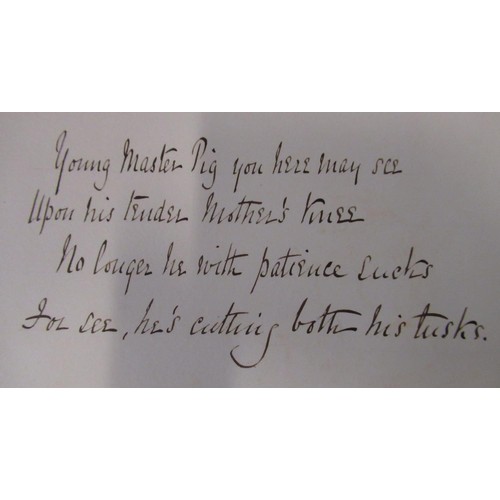 Young Master Pig you here may see
Upon his tender Mother's Knee
No longer he with patience sucks
For see, he's cutting both his tusks.